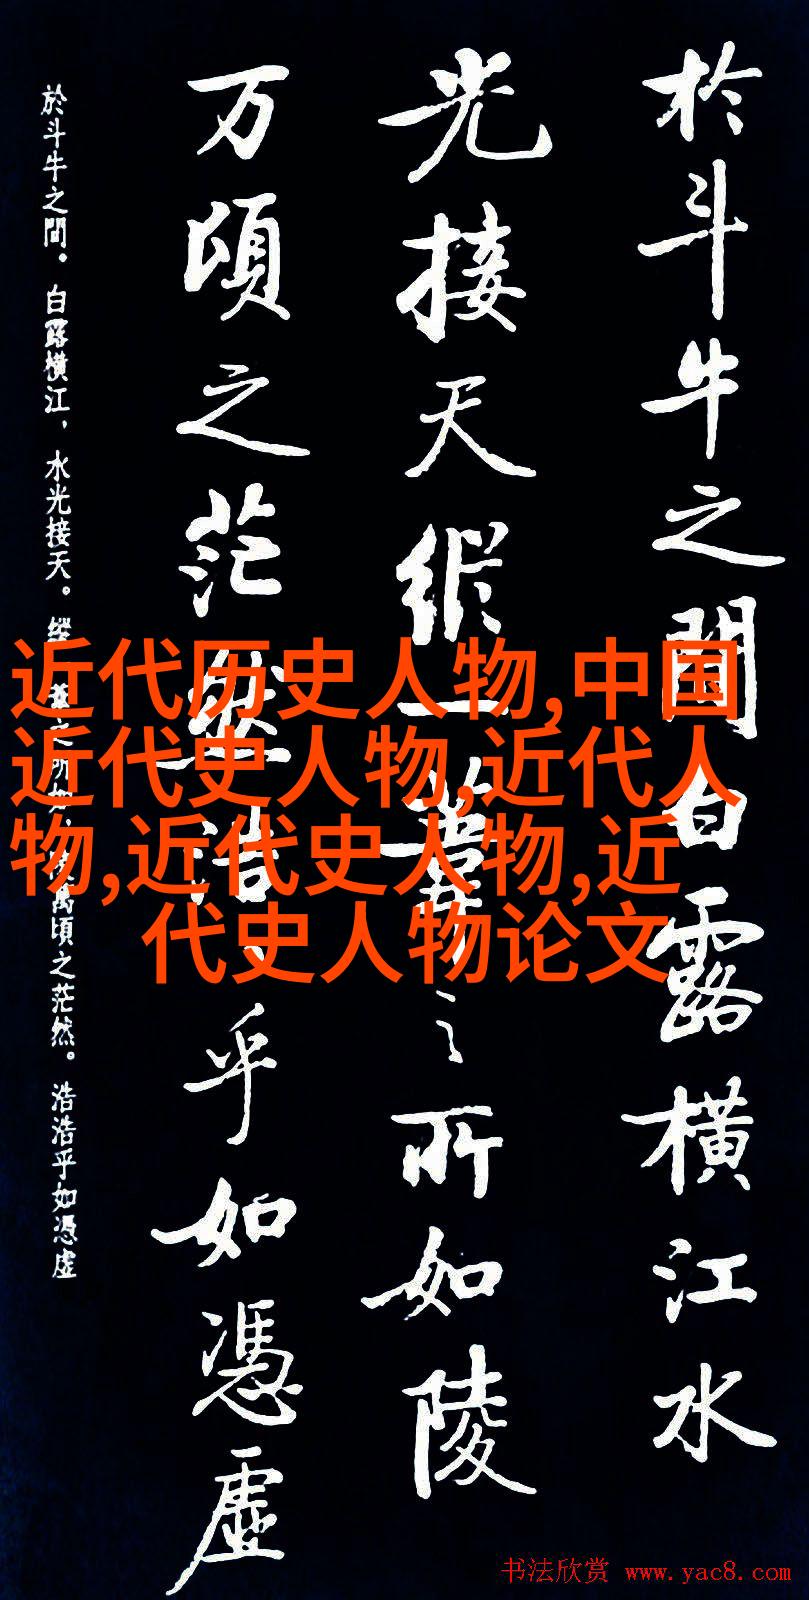 於斗牛之間白露横江水
光接天縱一葦之所如陵
万頃之茫然浩浩乎如憑虛
於斗牛之間。白露横江,水光接天。縱一葦之所如,陵萬頃之茫然。浩浩乎如憑虛
近代历史人物,中国
近代史人物,近代人
物,近代史人物,近
代史人物论文
书法欣赏 www.yac8.com